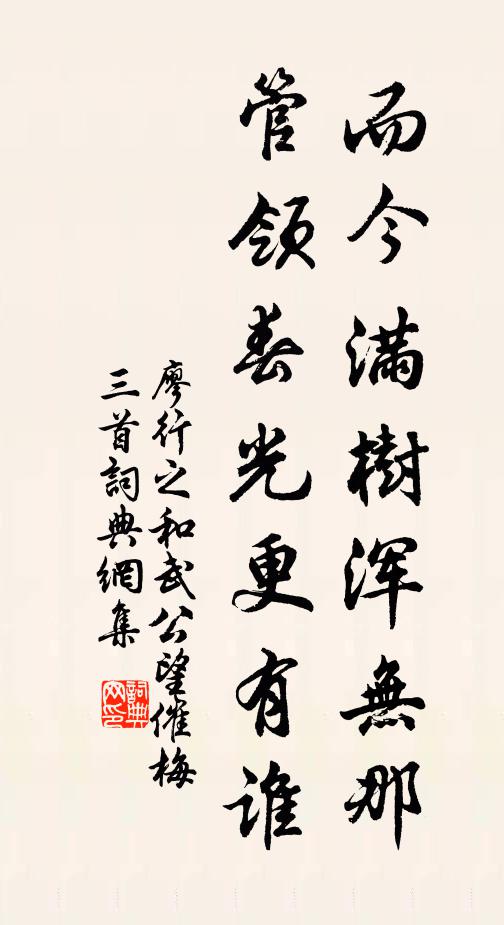 而今滿樹渾無那
管領春光更有誰
廖行之和武公望催梅
三首詞典網集
詞典
网印